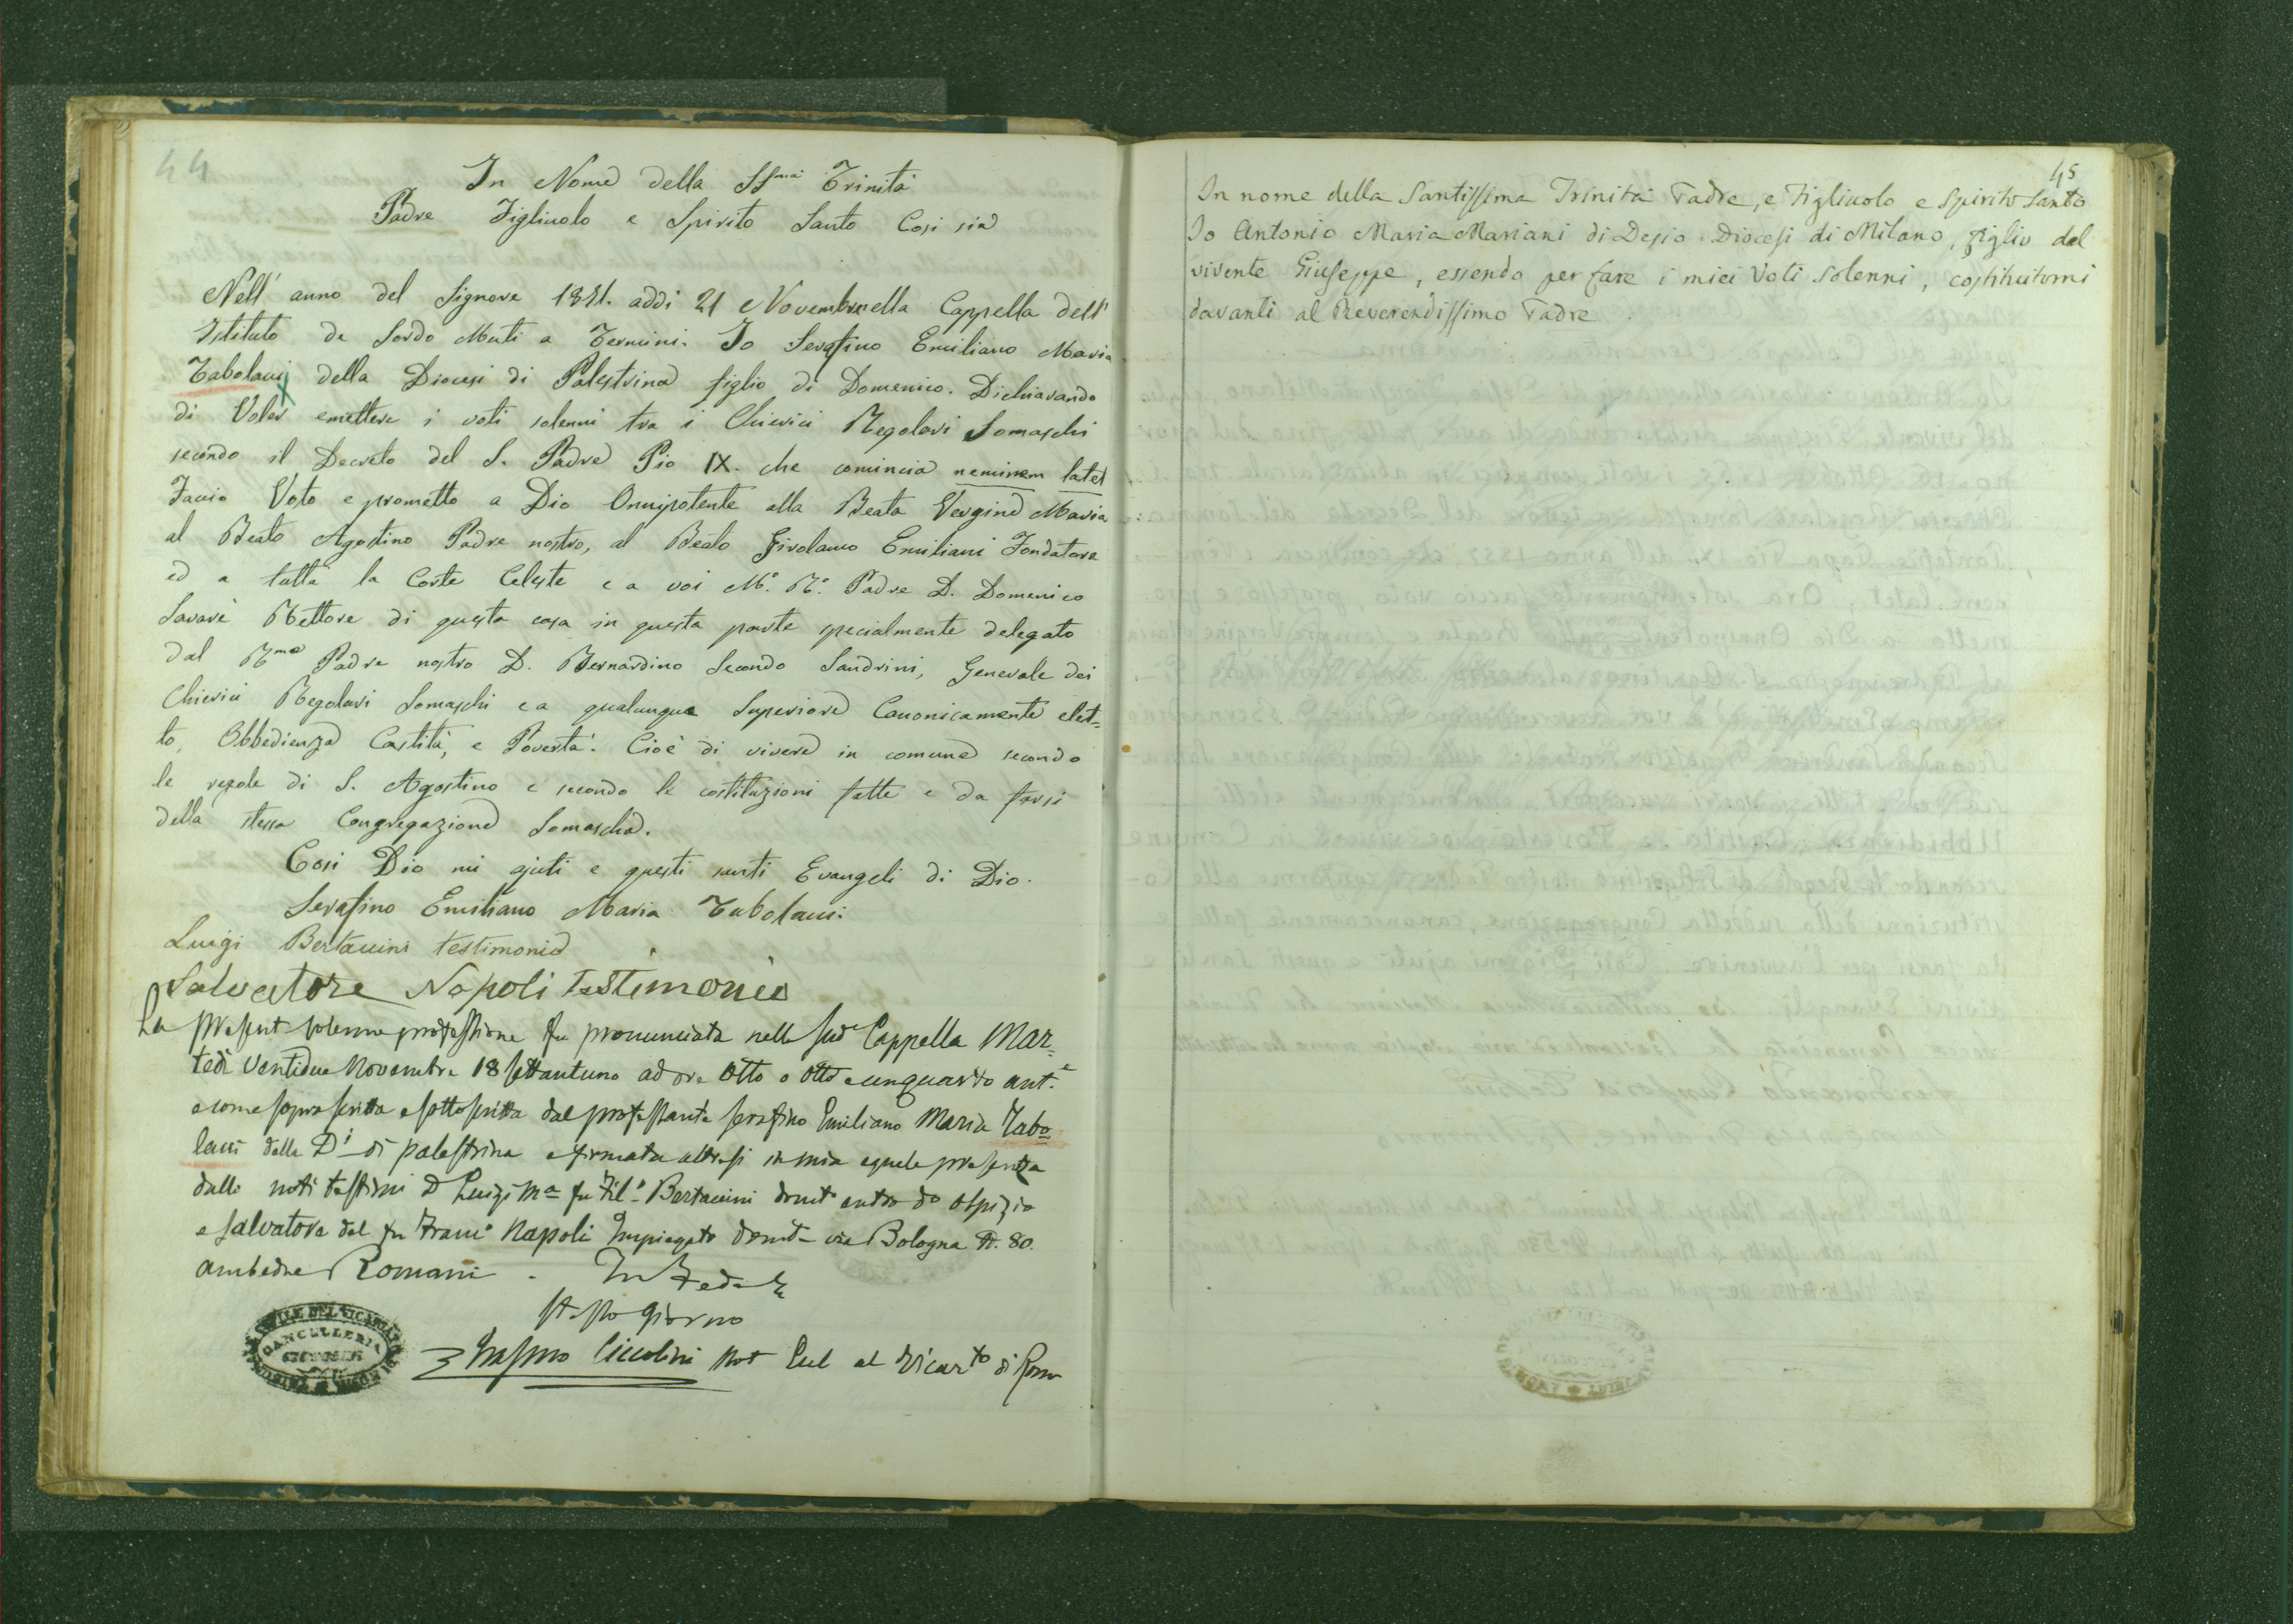 44
In Nome della SSma Trinità
Padre Figliuolo e Spirito Santo Cosi sia
Nell' anno del Signore 1871. addi 21 Novembre nella Cappella dell'
Istituto de Sordo Muti a Termini. Io Serafino Emiliano Maria
Tabolacci della Diocesi di Palestrina figlio di Domenico. Dichiarando
di Voler emettere i voti solenni tra i Chierici Regolari Somaschi
secondo il Decreto del S. Padre Pio IX. che comincia neminem latet
Faccio Voto e prometto a Dio Onnipotente alla Beata Vergine Maria
al Beato Agostino Padre nostro, al Beato Girolamo Emiliani Fondatore
ed a tutta la Corte Celeste e a voi Mo. Ro. Padre D. Domenico
Savarè Rettore di questa casa in questa parte specialmente delegato
dal Rmo Padre nostro D. Bernardino Secondo Sandrini, Generale dei
Chierici Regolari Somaschi e a qualunque Superiore Canonicamente elet=
to, Obbedienza Castità, e Povertà. Cioè di vivere in comune secondo
le regole di S. Agostino e secondo le costituzioni fatte e da farsi
della stessa Congregazione Somascha.
Cosi Dio mi ajuti e questi santi Evangeli di Dio.
Serafino Emiliano Maria Tabolacci.
Luigi Bertaccini testimonio
Salvatore Napoli Testimonio
La present solenne professione fu pronunciata nella sud Cappella Mar=
tedi Ventidue Novembre 18settantuno ad ore Otto o Otto e un quarto ant.e
e come soprascritta e sottoscritta dal professante Serafino Emiliano Maria Tabo=
lacci della Di di Palestrina e firmata altresi in mia eguale presenza
dalli noti testimi D Luigi Ma fu Fil.o Bertaccini domto entro do Ospizio
e Salvatore del fu Franco Napoli Impiegato domto via Bologna N. 80.
ambedue Romani. In Fede
stesso giorno
CANCELLERIA
Erasmo Ciccolini Not Eccl al Vicarto di Roma
45
In nome della Santissima Trinità Padre, e Figliuolo e Spirito Santo
Io Antonio Maria Mariani di Desio Diocesi di Milano, figlio del
vivente Giuseppe, essendo per fare i miei Voti Solenni, costituitomi
davanti al Reverendissimo Padre